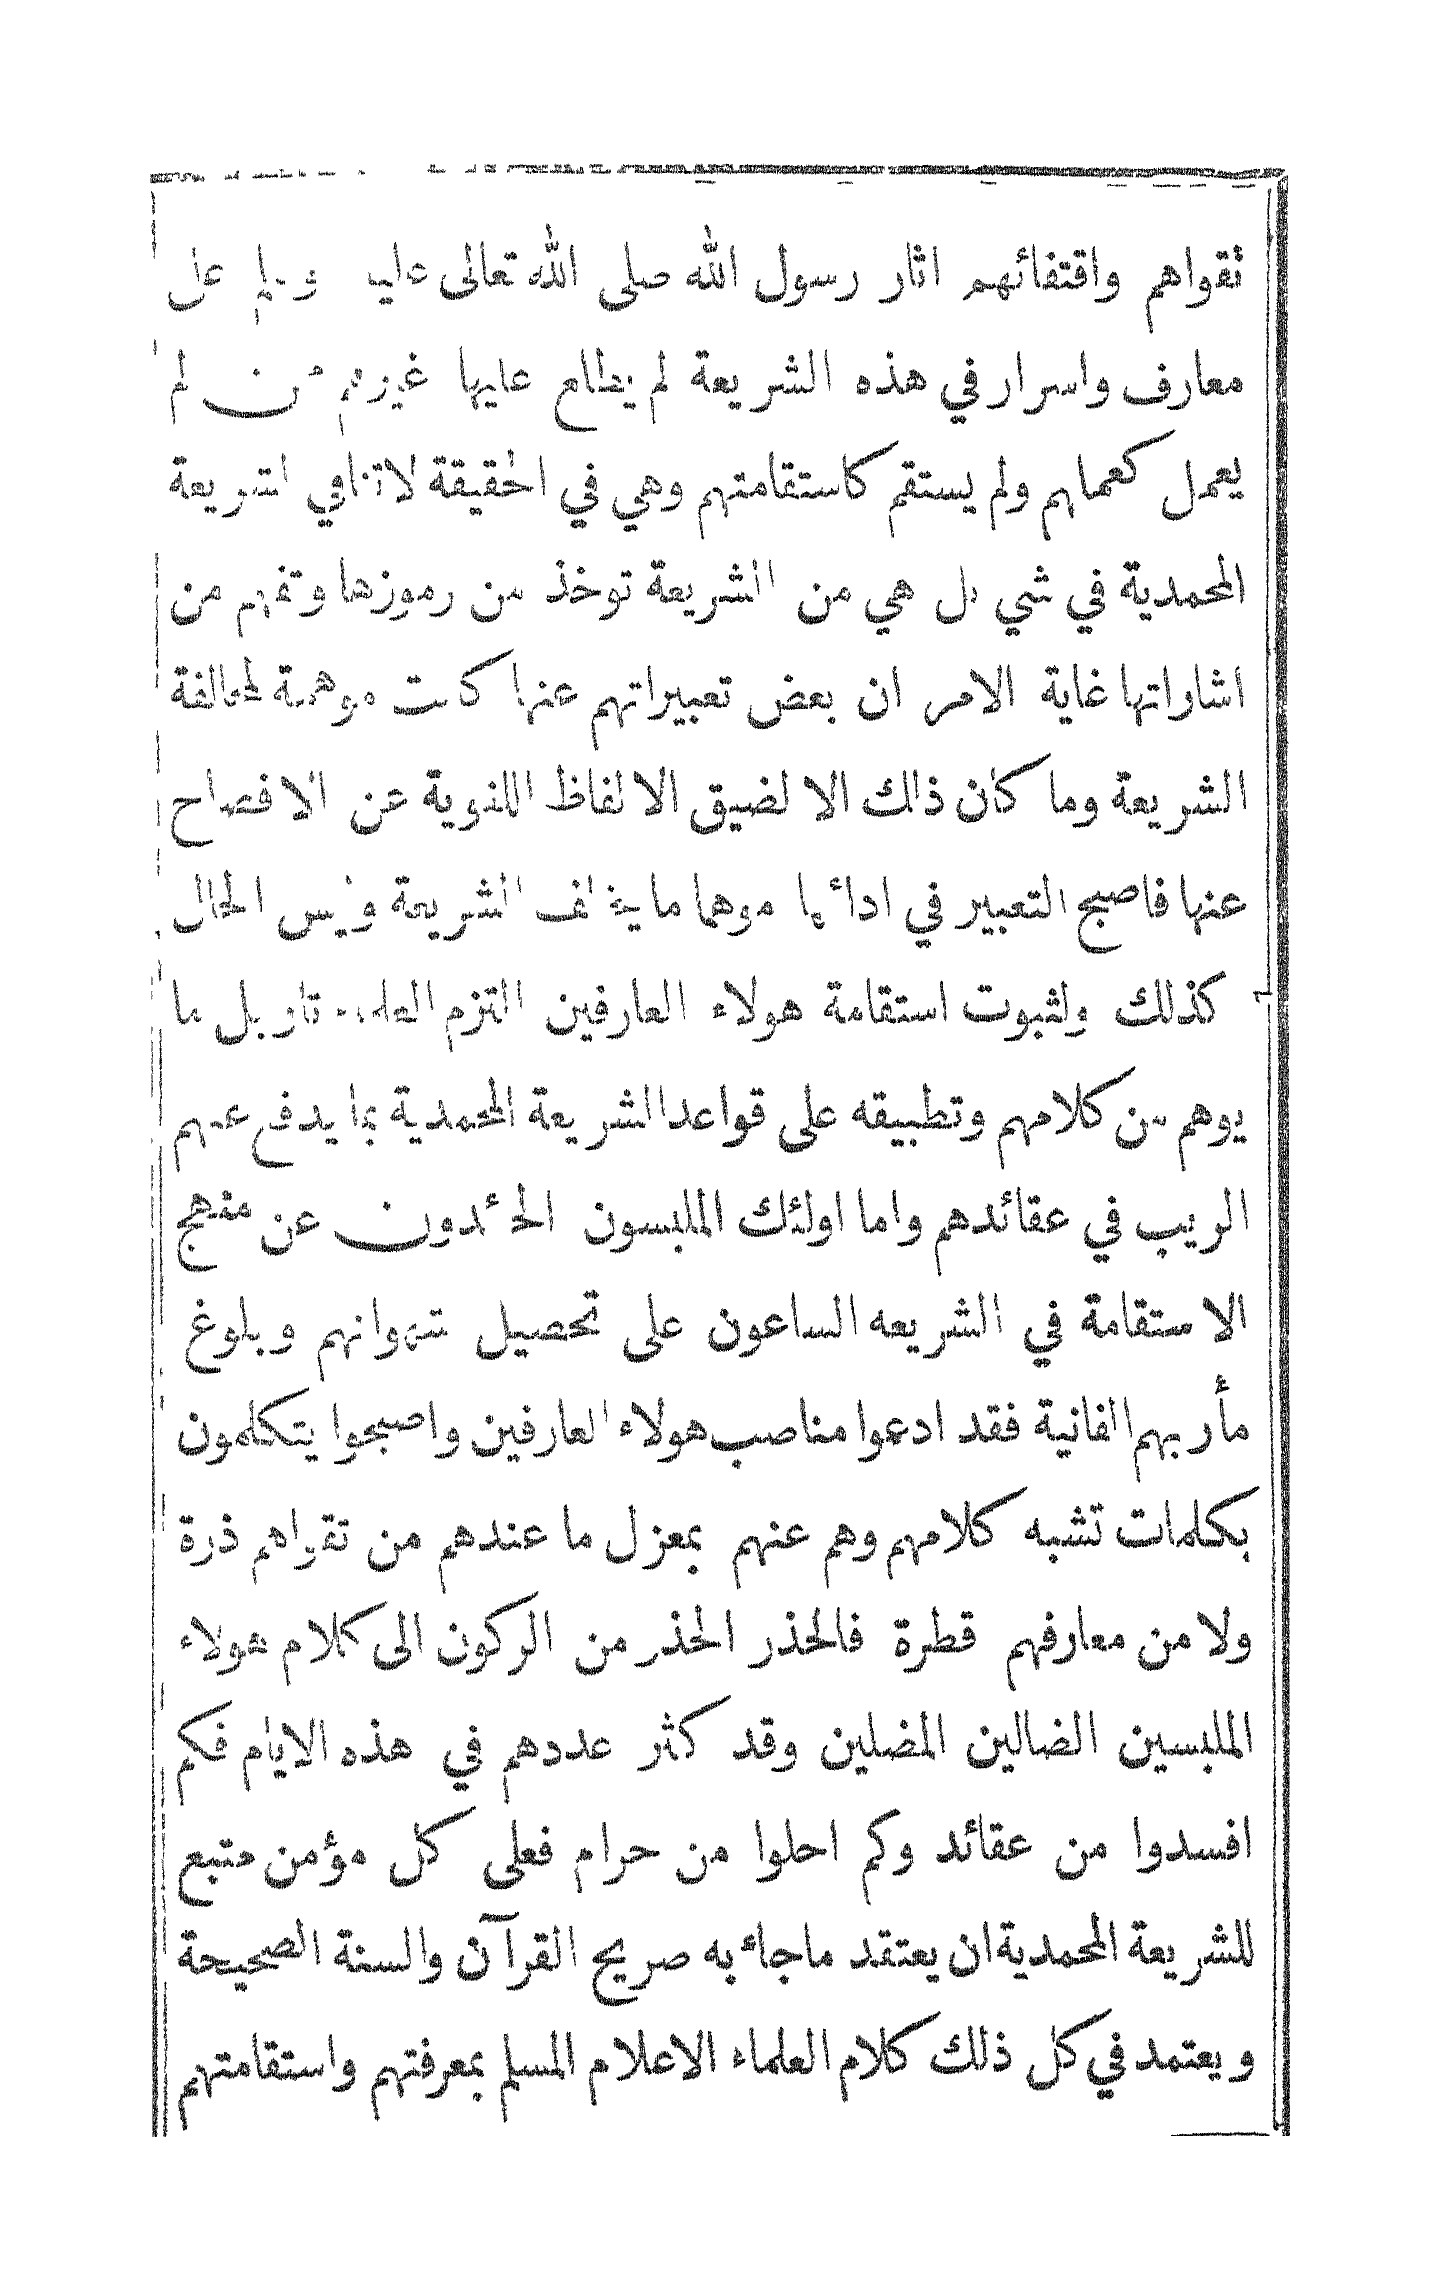 تقواهم واقتفائهم اثار رسول الله صلى الله تعالى عليه وسلم على
معارف واسرار في هذه الشريعة لم يطلع عليها غيرهم ممن لم
يعمل كعملهم ولم يستقم كاستقامتهم وهي في الحقيقة لاتنافي الشريعة
المحمدية في شي بل هي من الشريعة توخذ من رموزها وتفهم من
اشاراتها غاية الامر ان بعض تعبيراتهم عنها كانت موهمة لمخالفة
الشريعة وما كان ذالك الا لضيق الالفاظ اللغوية عن الافصاح
عنها فاصبح التعبير في ادائها موهما مايخالف الشريعة وليس الحال
كذلك ولثبوت استقامة هولاء العارفين التزم العلماء تاويل ما
يوهم من كلامهم وتطبيقه على قواعد الشريعة المحمدية بما يدفع عنهم
الريب في عقائدهم واما اولئك الملبسون الحائدون عن منهج
الاستقامة في الشريعه الساعون على تحصيل شهواتهم وبلوغ
مأربهم الفانية فقد ادعوا مناصب هولاء العارفين واصبحوا يتكلمون
بكلمات تشبه كلامهم وهم عنهم بمعزل ما عندهم من تقواهم ذرة
ولا من معارفهم قطرة فالحذر الحذر من الركون الى كلام هولاء
الملبسين الضالين المضلين وقد كثر عددهم في هذه الايام فكم
افسدوا من عقائد وكم احلوا من حرام فعلى كل مؤمن متبع
للشريعة المحمدية ان يعتقد ماجاء به صريح القرآن والسنة الصحيحة
ويعتمد في كل ذلك كلام العلماء الاعلام المسلم بمعرفتهم واستقامتهم